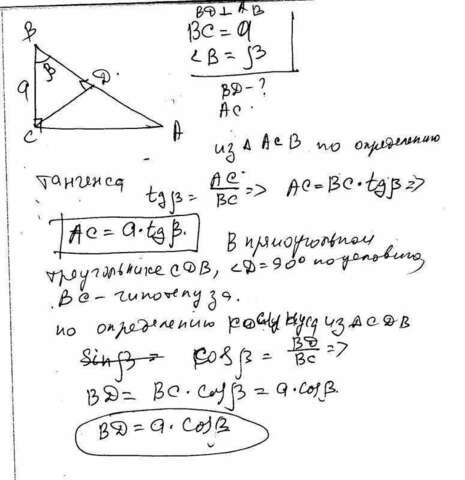 BD ⊥ AB
BC = a
∠B = β
BD - ?
AC.
B
β
D.
a
C
A
из △ ACB по определению
тангенса tgβ = AC/BC => AC = BC·tgβ =>
AC = a·tgβ. В прямоугольном
треугольнике CDB, ∠D = 90° по условию,
BC - гипотенуза.
по определению косинуса из △CDB
Sinβ = Cosβ = BD/BC =>
BD = BC·Cosβ = a·cosβ
BD = a·cosβ